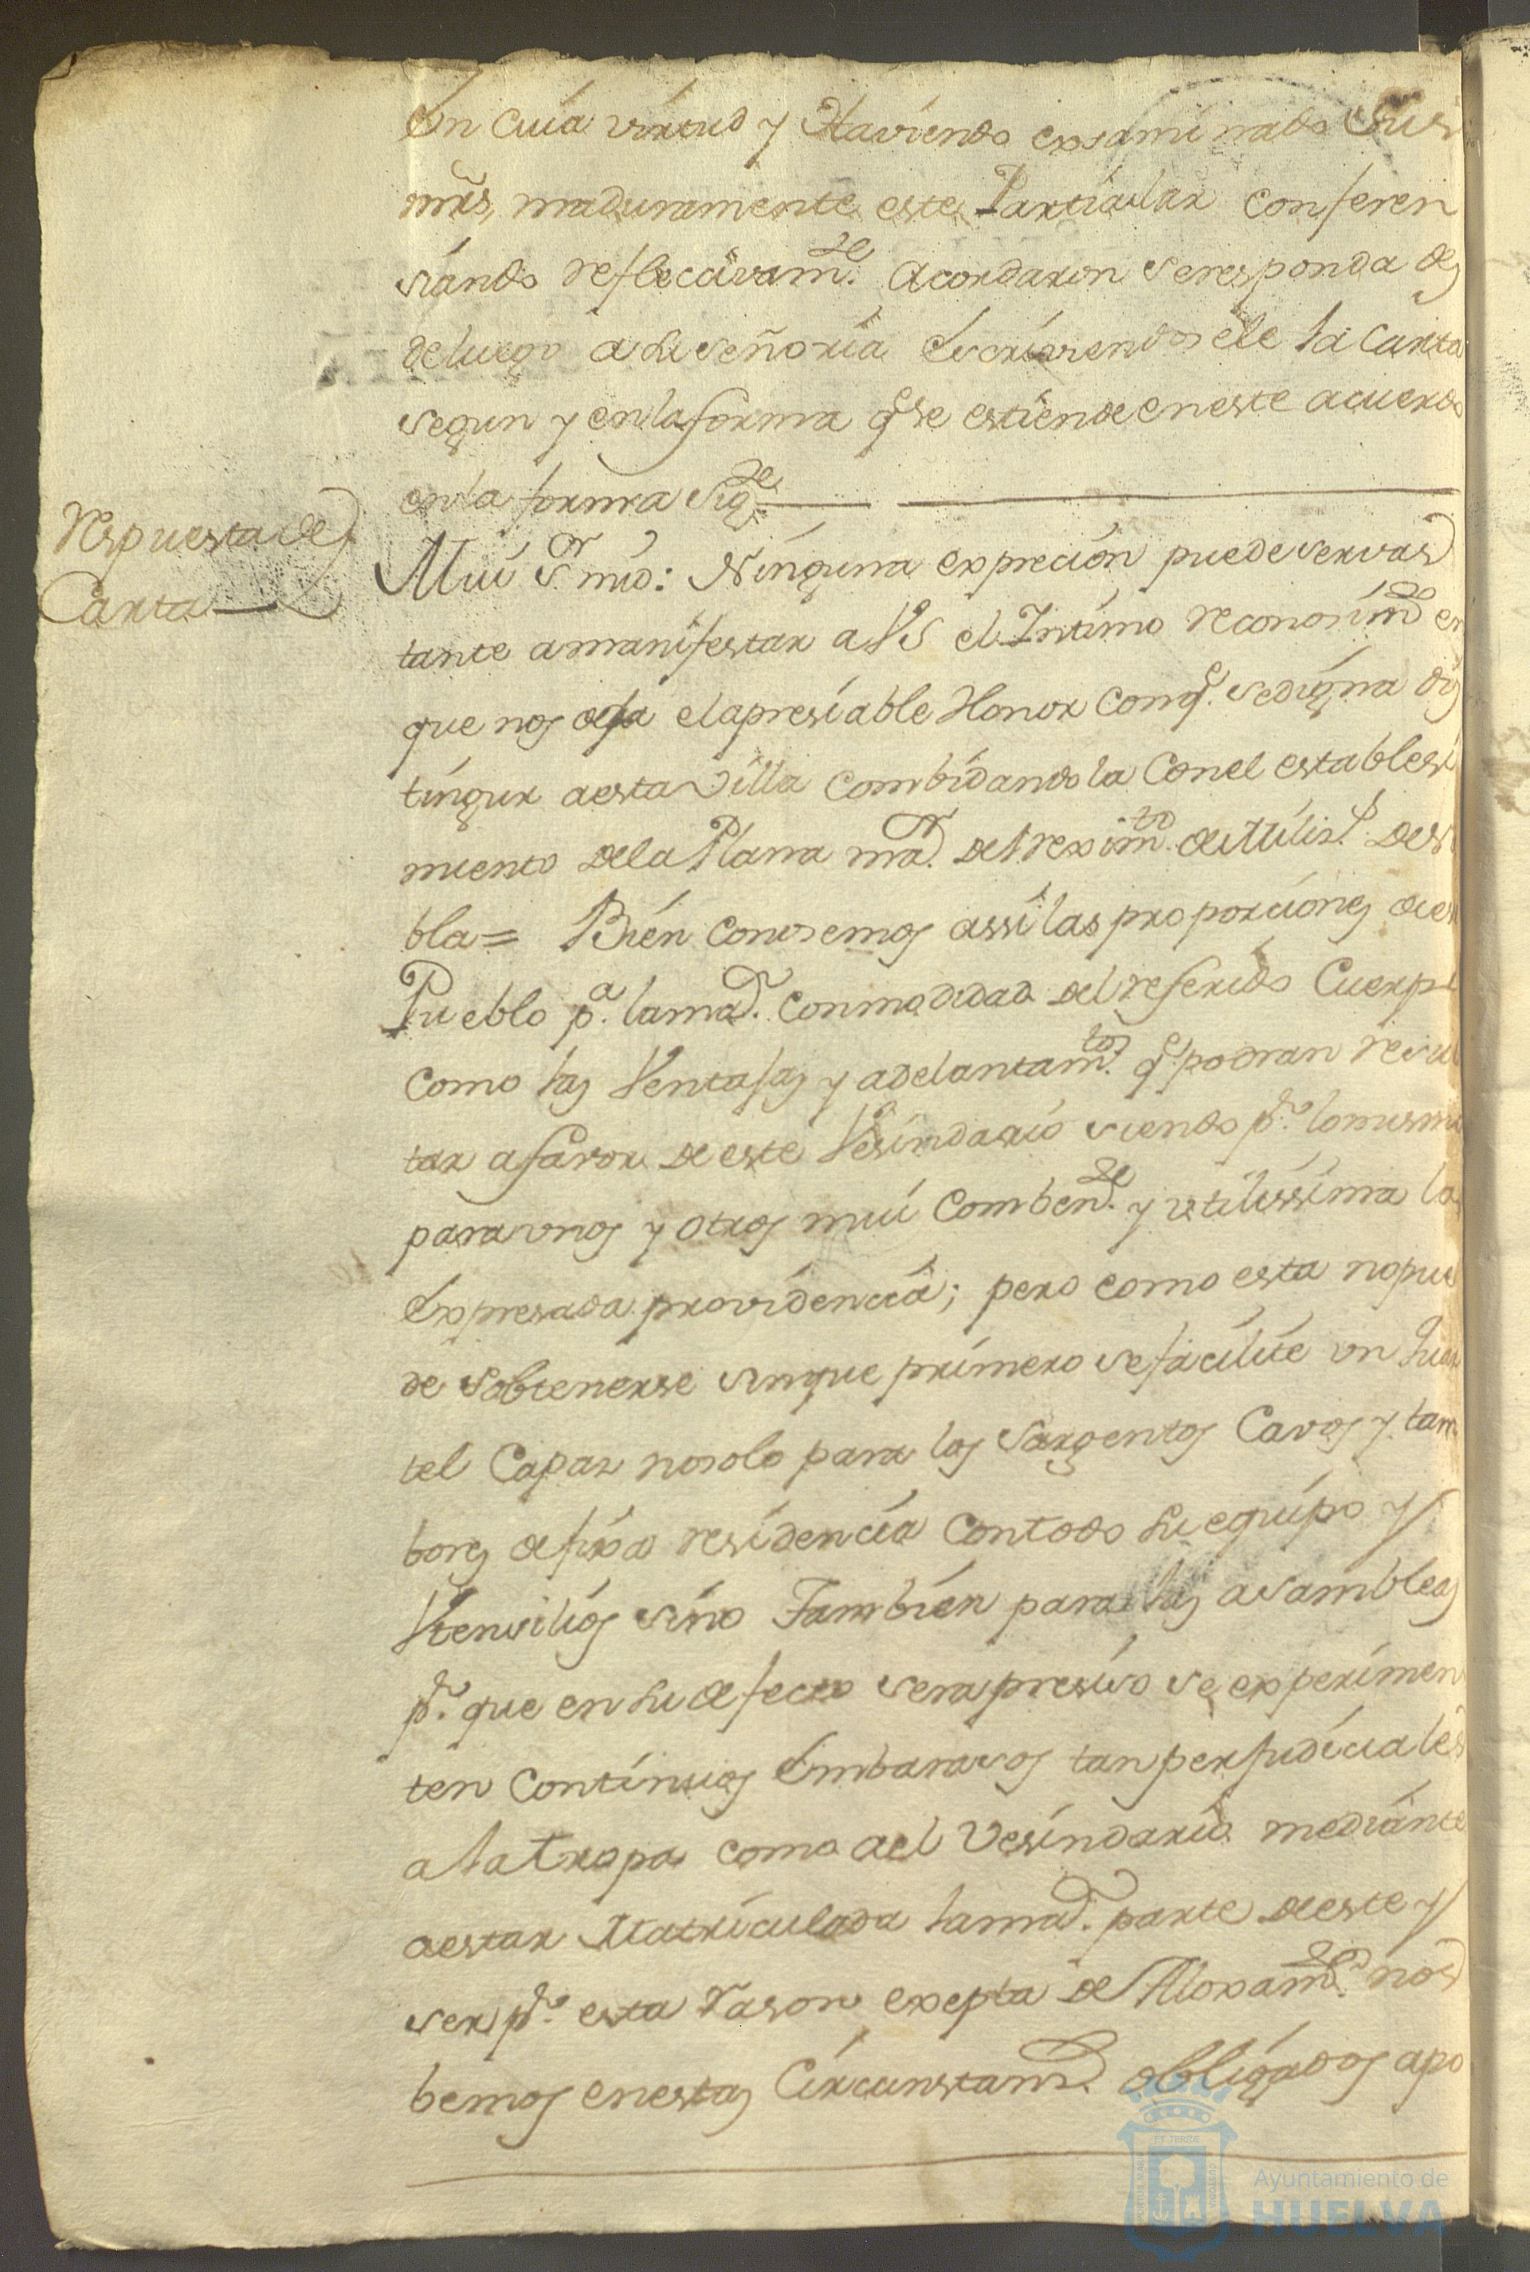 En cuia virtud y Haviendo exsaminado Sus
mrs, maduramente este Particular conferen
siando reflecsivam.te Acordaron se responda des
de luego a su señoria escriviendosele la Carta
segun y en la forma q.e se estiende en este acuerdo
en la forma sig.te
Respuesta de
Carta
Mui S.or mio: Ninguna expreción puede ser vas
tante a manifestar a VS el Intimo reconosim.to en
que nos deja el apresiable Honor con q.e se digna dis
tinguir a esta Villa combidandola con el establesi
miento de la Plana ma.r del reximi.to de Milis.s de Ni
bla = Bien conosemos assi las proporciones de es
Pueblo p.a la ma.r conmodidad del referido Cuerpo
como las Ventajas y adelantam.tos q.e podran resul
tar a favor de este Vesindario siendo p.r lo mismo
para unos y otros mui comben.te y utilissima la
Expresada providencia; pero como esta no pue
de obtenerse sin que primero se facilite un Quar
tel Capaz no solo para los Sargentos Cavos y tam
bores de fixa residencia con todo su equipo y
Utensilios sino Tambien para las asambleas
p.r que en su defecto sera presiso se experimen
ten continuos Embarasos tan perjudiciales
a la tropa como a el Vesindario mediante
a estar Matriculada la ma.r parte de este y
ser p.r esta rason exepta de Aloxam.to nos
bemos en estas Circunstan.s obligados a po
Ayuntamiento de
HUELVA